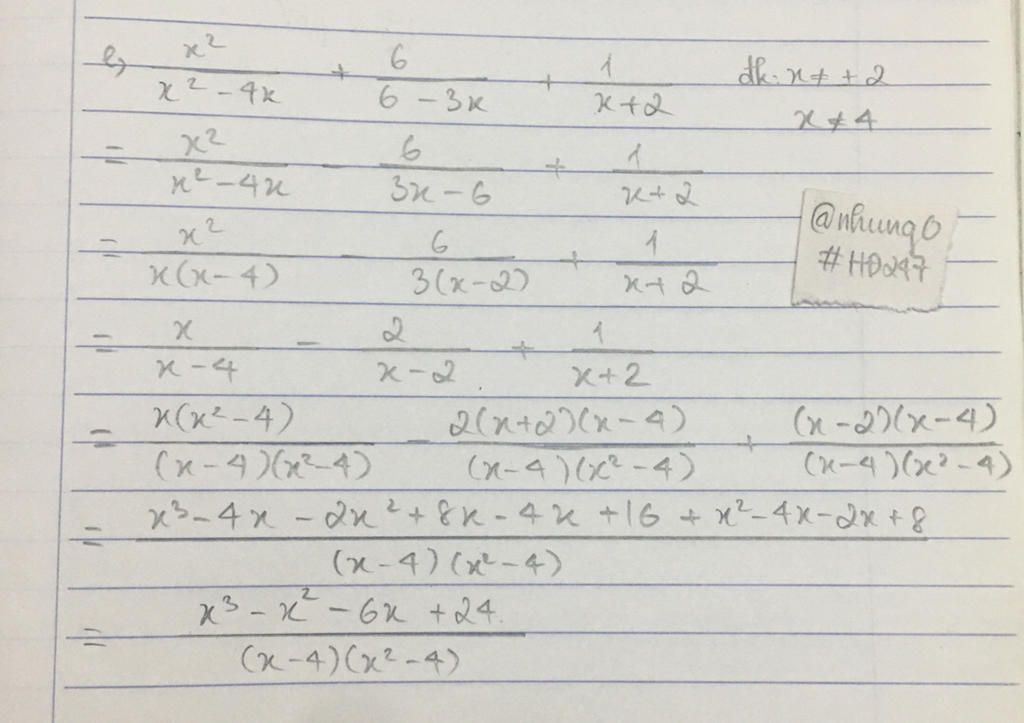 e, x²/(x² - 4x) + 6/(6 - 3x) + 1/(x+2) đk: x ≠ ± 2
x ≠ 4
= x²/(x² - 4x) - 6/(3x - 6) + 1/(x+2)
@nhungo
#HĐ247
= x²/(x(x-4)) - 6/(3(x-2)) + 1/(x+2)
= x/(x-4) - 2/(x-2) + 1/(x+2)
= x(x²-4)/((x-4)(x²-4)) - 2(x+2)(x-4)/((x-4)(x²-4)) + (x-2)(x-4)/((x-4)(x²-4))
= (x³ - 4x - 2x² + 8x - 4x + 16 + x² - 4x - 2x + 8)/((x-4)(x²-4))
= (x³ - x² - 6x + 24)/((x-4)(x²-4))